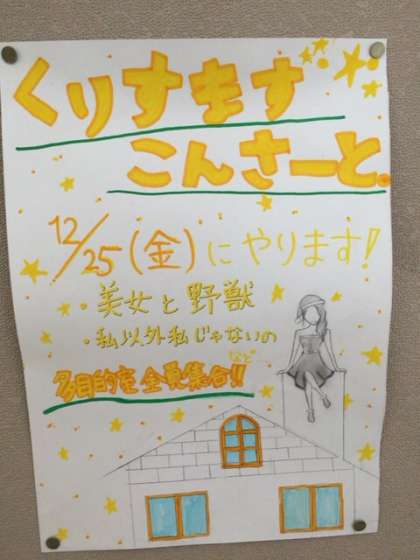 くりすます
こんさーと.
12/25(金)にやります!
・美女と野獣
・私以外私じゃないの
など
多目的室全員集合!!